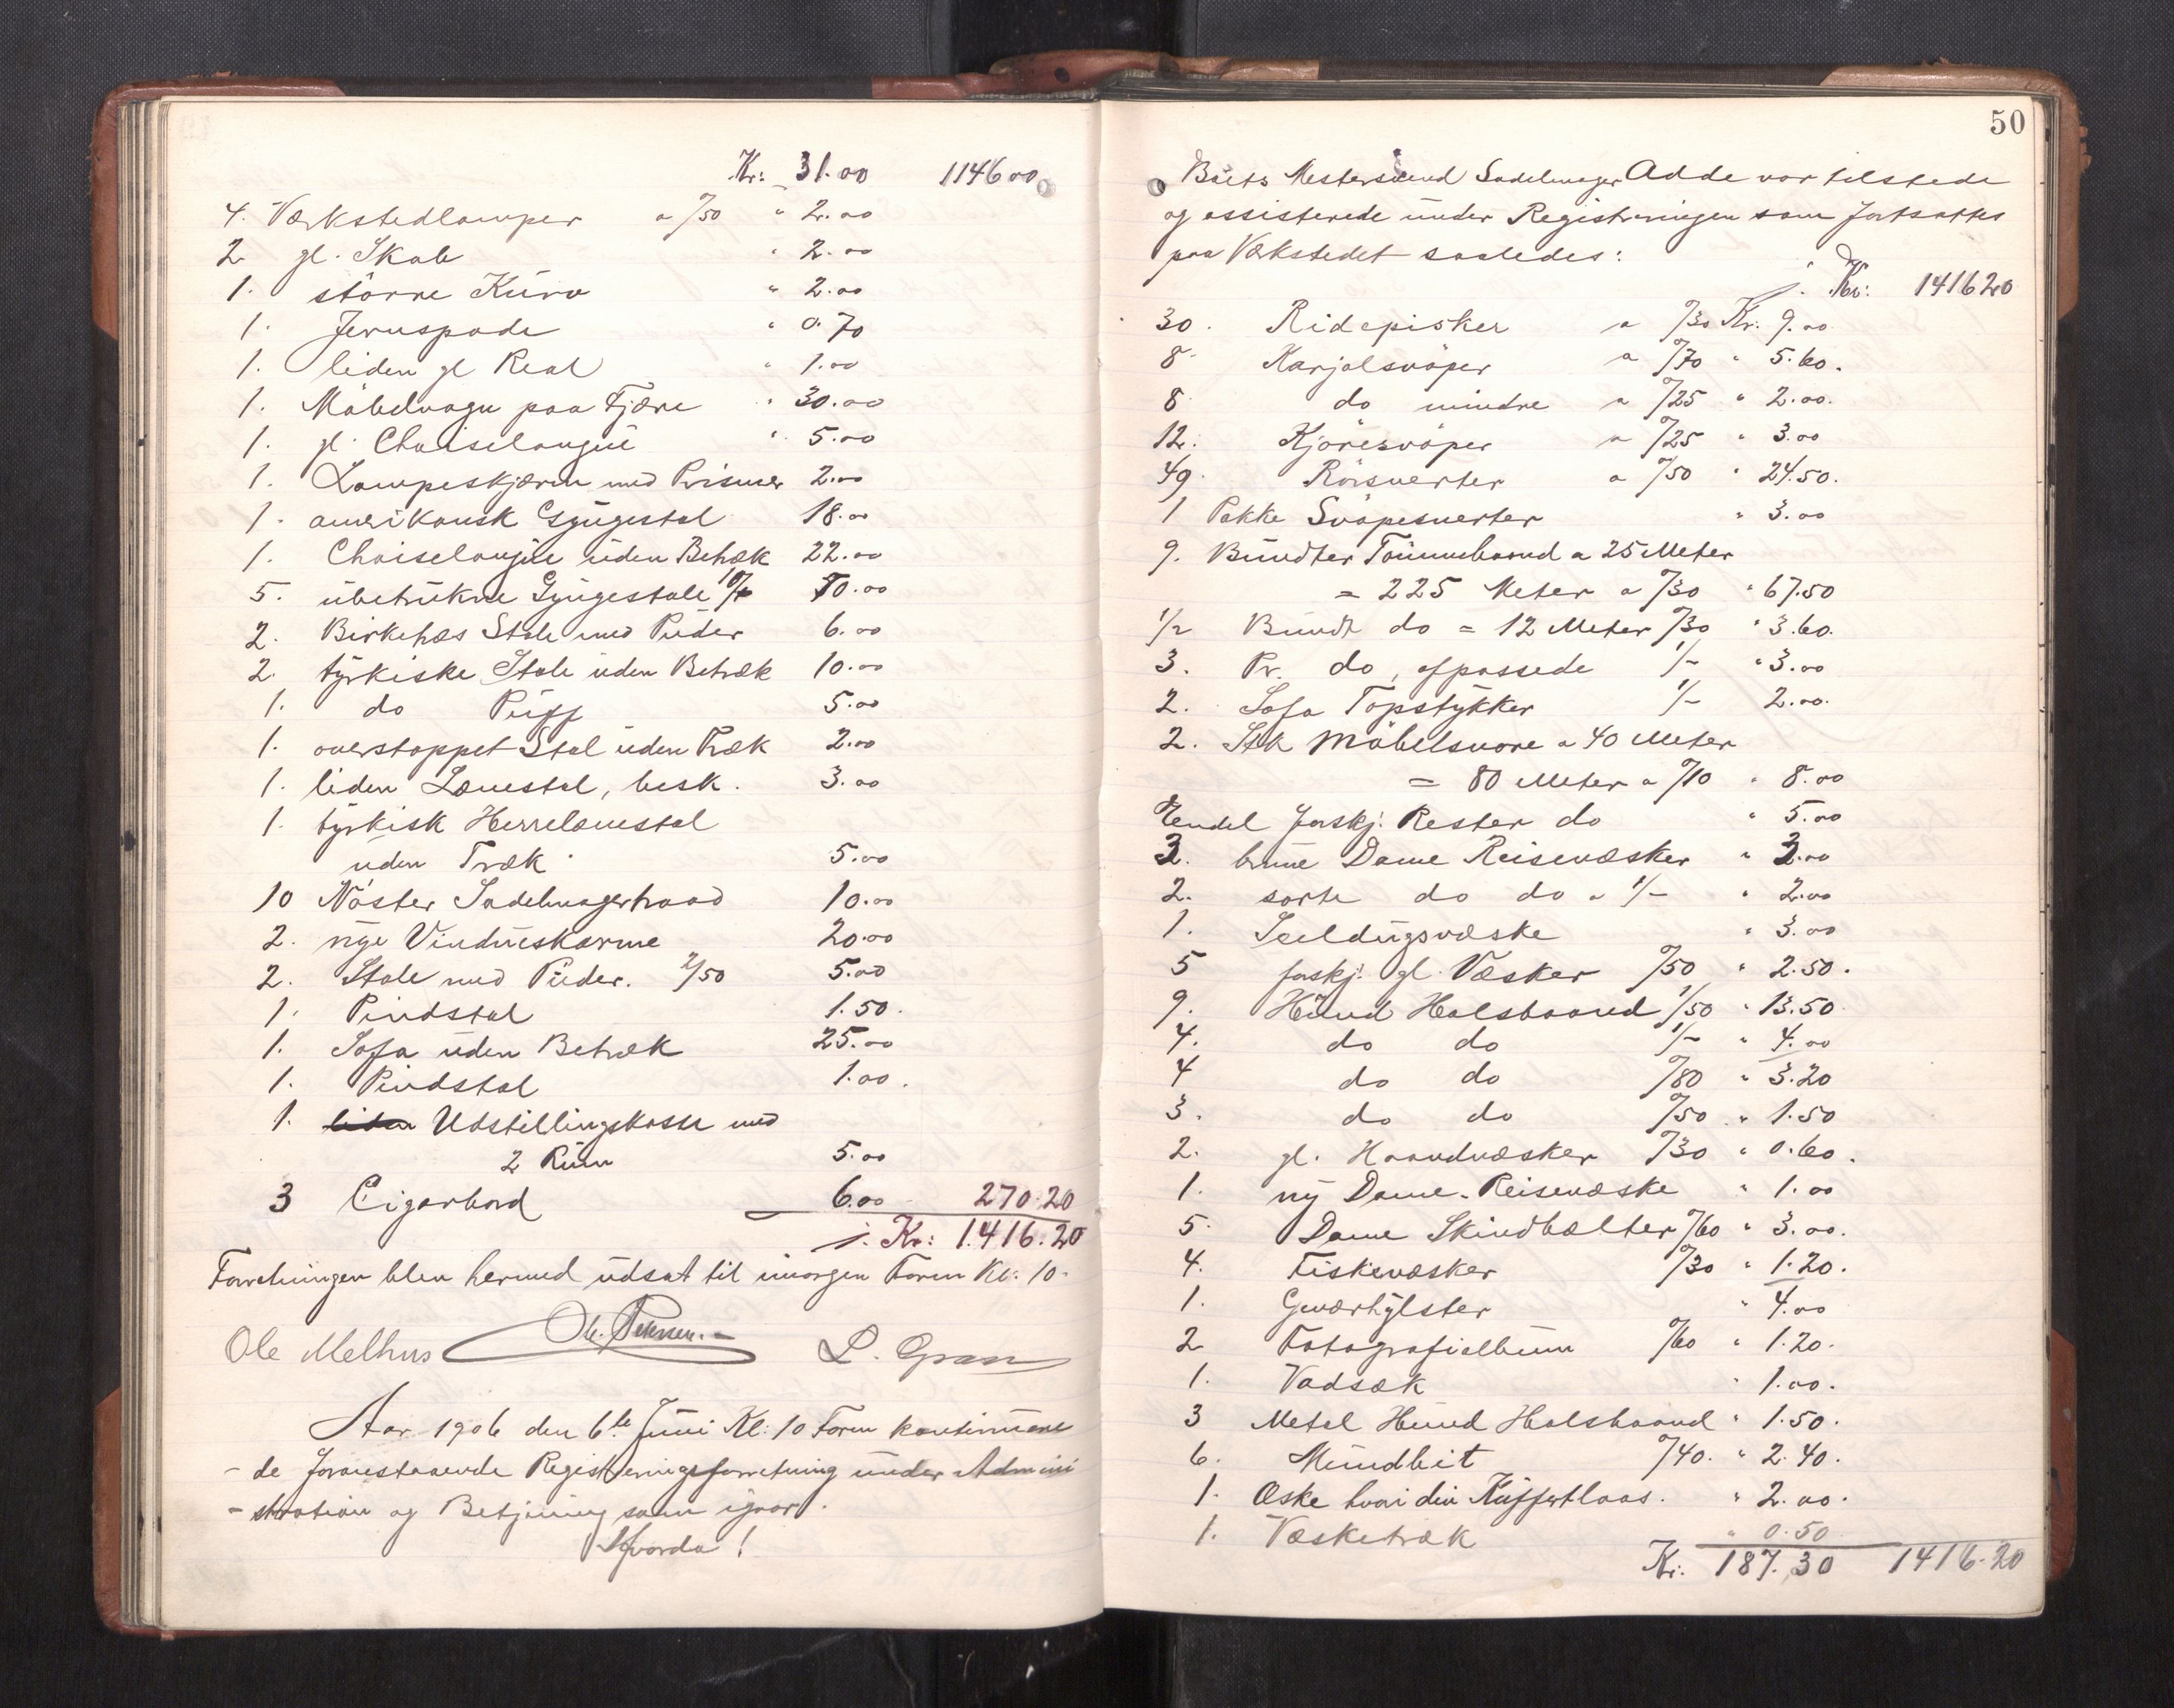 Kr: 31.00 1146 00
4. Værkstedlamper a 0/50 " 2.00
2 gl. Skab " 2.00
1. större Kurv " 2.00
1. Jernspade " 0.70
1. liden gl Real " 1.00
1. Möbelvogn paa Fjære " 30.00
1. gl. Chaiselongue " 5.00
1. Lampeskjærm med Prismer 2.00
1. amerikansk Gyngestol 18.00
1. Chaiselongue uden Betræk 22.00
5. ubetrukne Gyngestole 10/- 50.00
2. Birketræs Stole med Puder 6.00
2. tyrkiske Stole uden Betræk 10.00
1. do Puff 5.00
1. overstoppet Stol uden Træk 2.00
1. liden Lænestol, besk. 3.00
1. tyrkisk Herrelænestol
uden Træk 5.00
10 Nöster Sadelmagertraad 10.00
2. nye Vindueskarme 20.00
2. Stole med Puder. 2/50 5.00
1. Pindstol 1.50.
1. Sofa uden Betræk 25.00
1. Pindstol 1.00.
1. liden Udstillingskasse med
2 Rum 5.00
3 Cigarbord 6.00 270.20
i. Kr: 1.416.20
Forretningen blev hermed udsat til imorgen Form Kl: 10.
Ole Melhus Ol. Petersen. L. Gram
Aar 1906 den 6te Juni Kl: 10 Form kontinuere
- de foranstaaende Registreringsforretning under Admini
- stration og Betjening som igaar.
Hvorda!
50
Boets Mestersvend Sadelmager Adde var tilstede
og assisterede under Registreringen som fortsattes
paa Værkstedet saaledes:
i. Kr: 1416 20
30. Ridepisker a 0/30 Kr. 9.00
8. Karjolsvöper a 0/70 " 5.60.
8 do mindre a 0/25 " 2.00.
12. Kjöresvöper a 0/25 " 3.00
49. Rörsnerter a 0/50 " 24.50.
1 Pakke Svöpesnerter " 3.00
9. Bundter Tömmebaand a 25 Meter
= 225 Meter a 0/30 " 67.50
1/2 Bundt do = 12 Meter 0/30 " 3.60.
3. Pr. do, afpassede 1/- " 3.00
2. Sofa Topstykker 1/- 2.00.
2. Stk Möbelsnore a 40 Meter
= 80 Meter a 0/10 " 8.00
Endel forskj: Rester do " 5.00
3. brune Dame Reisevæsker " 3.00
2. sorte do do a 1/- " 2.00
1. Seildugsvæske " 3.00
5 forskj. gl. Væsker 0/50 " 2.50.
9. Hund Halsbaand 1/50 " 13.50
4. do do 1/- " 4.00
4 do do 0/80 " 3.20
3. do do 0/50 " 1.50
2. gl. Haandvæsker 0/30 " 0.60.
1. ny Dame-Reisevæske " 1.00
5. Dame Skindbælter 0/60 " 3.00.
4. Fiskevæsker 0/30 " 1.20.
1. Geværhylster " 4.00
2 Fotografialbum 0/60 " 1.20.
1. Vadsæk " 1.00.
3 Metal Hund Halsbaand " 1.50.
6. Mundbit 0/40. " 2.40.
1. Æske hvori div Kuffertlaas. " 2.00.
1. Væsketræk " 0.50
Kr. 187.30 1416.20